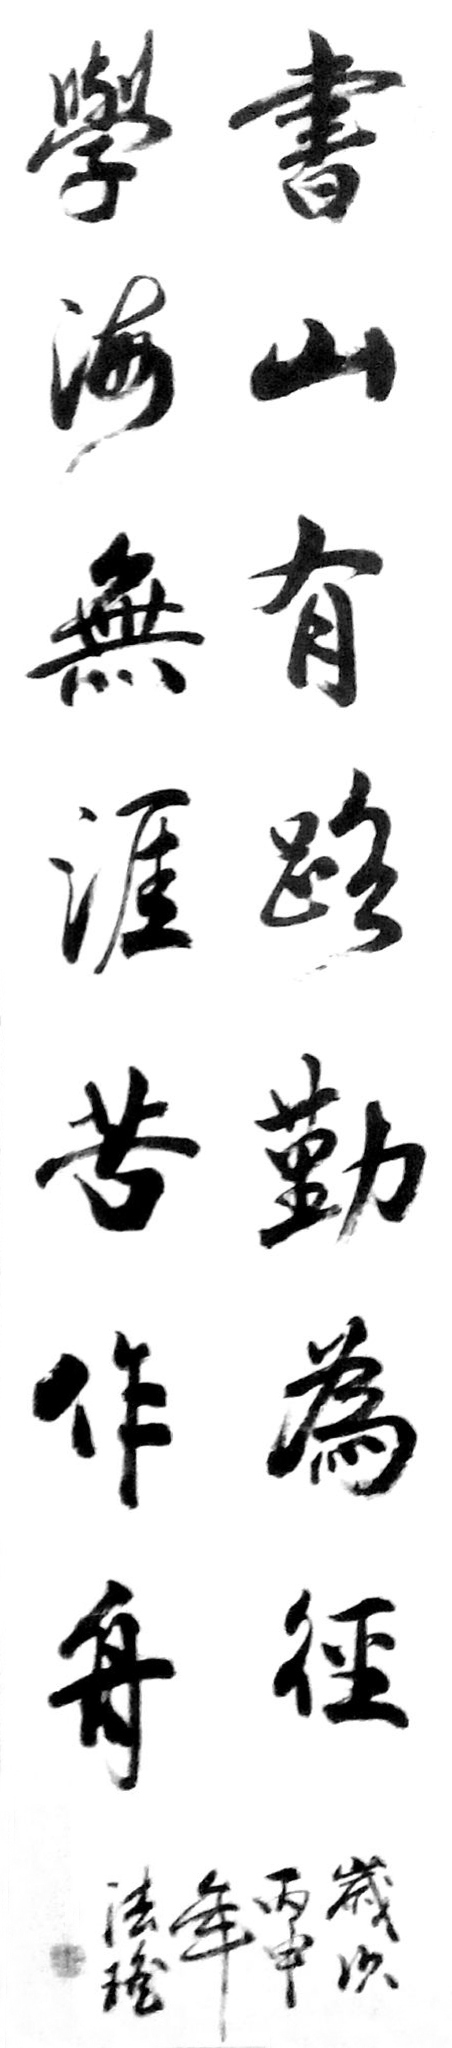 書山有路勤為徑
學海無涯苦作舟
歲次
丙申
年